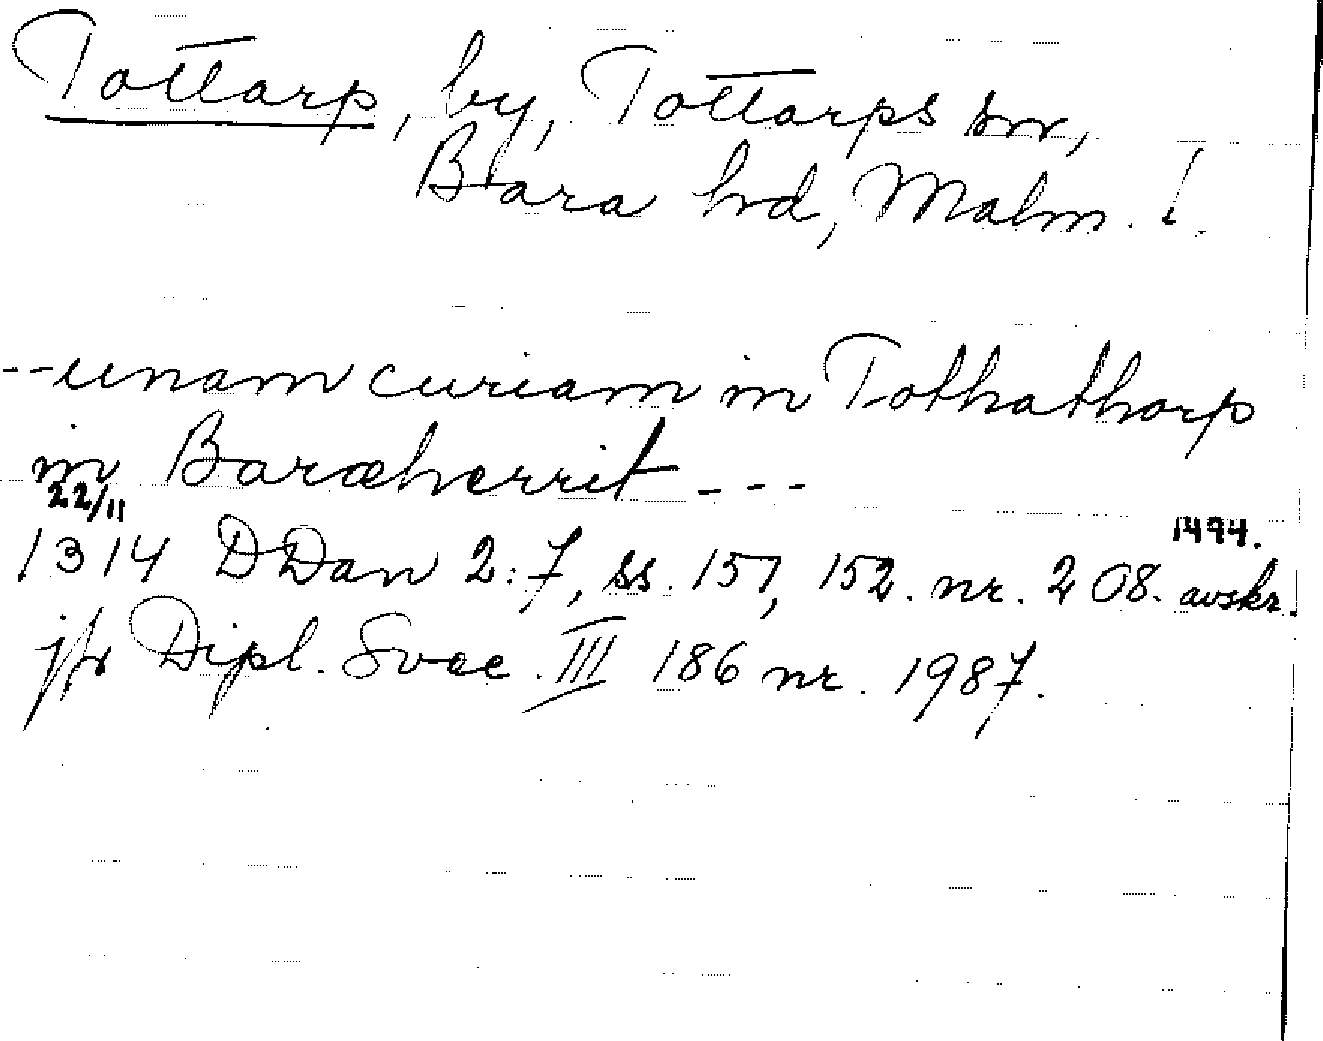 Tottarp, by, Tottarps sn,
Bara hd, Malm. l.
--unam curiam in Tothathorp
in Baræherrit ---
22/11
1494.
1314 DDan 2:7, ss. 151, 152. nr. 208. avskr.
jfr Dipl. Svec. III 186 nr. 1987.